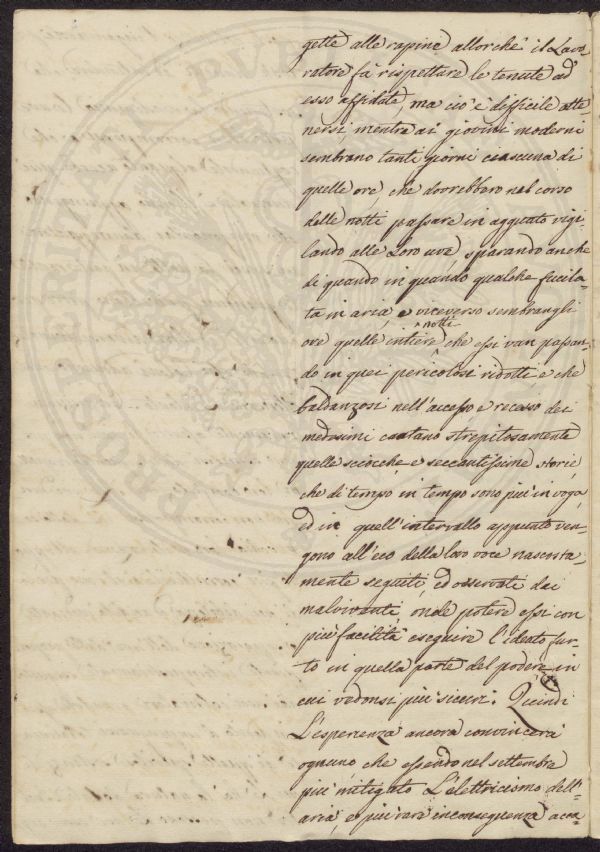 gette alle rapine allorchè il Lavo-
ratore fà rispettare le tenute ad
esso affidate, ma ciò è difficile atte-
nersi mentre ai giovini moderni
sembrano tanti giorni ciascuna di
quelle ore, che dovrebbero nel corso
delle notti passare in agguato vigi-
lando alle Loro uve, sparando anche
di quando in quando qualche fucila-
ta in aria, e viceverso sembrangli
notti
ore quelle intiere che essi van passan-
do in quei pericolosi ridotti e che
baldanzosi nell'accesso e recesso dei
medesimi cantano strepitosamente
quelle sciocche, e seccantissime storie,
che di tempo in tempo sono più in voga,
ed in quell'intervallo appunto ven-
gono all'eco della loro voce nascosta-
mente seguiti, ed osservati dai
malviventi, onde potere essi con
più facilità eseguire l'ideato fur-
to in quella parte del podere in
cui vedonsi più sicuri. Quindi
L'esperienza ancora convincerà
ognuno che essendo nel settembre
più mitigato L'elettricismo dell'
aria, e più rare in conseguenza acca-
PROSPERITAS PUBL